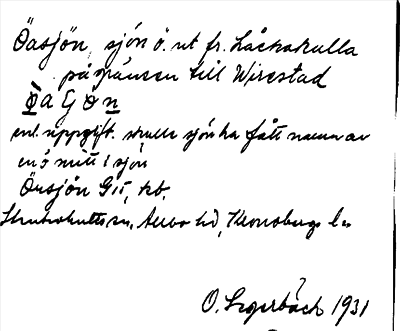 Öasjön, sjön ö. ut fr. Låckakulla
på gränsen till Wirestad
öagön
enl. uppgift. skulle sjön ha fått namn av
en ö mitt i sjön
Öasjön G15, kb.
Allbo hd, Kronobergs län
O. Segerbäck 1931